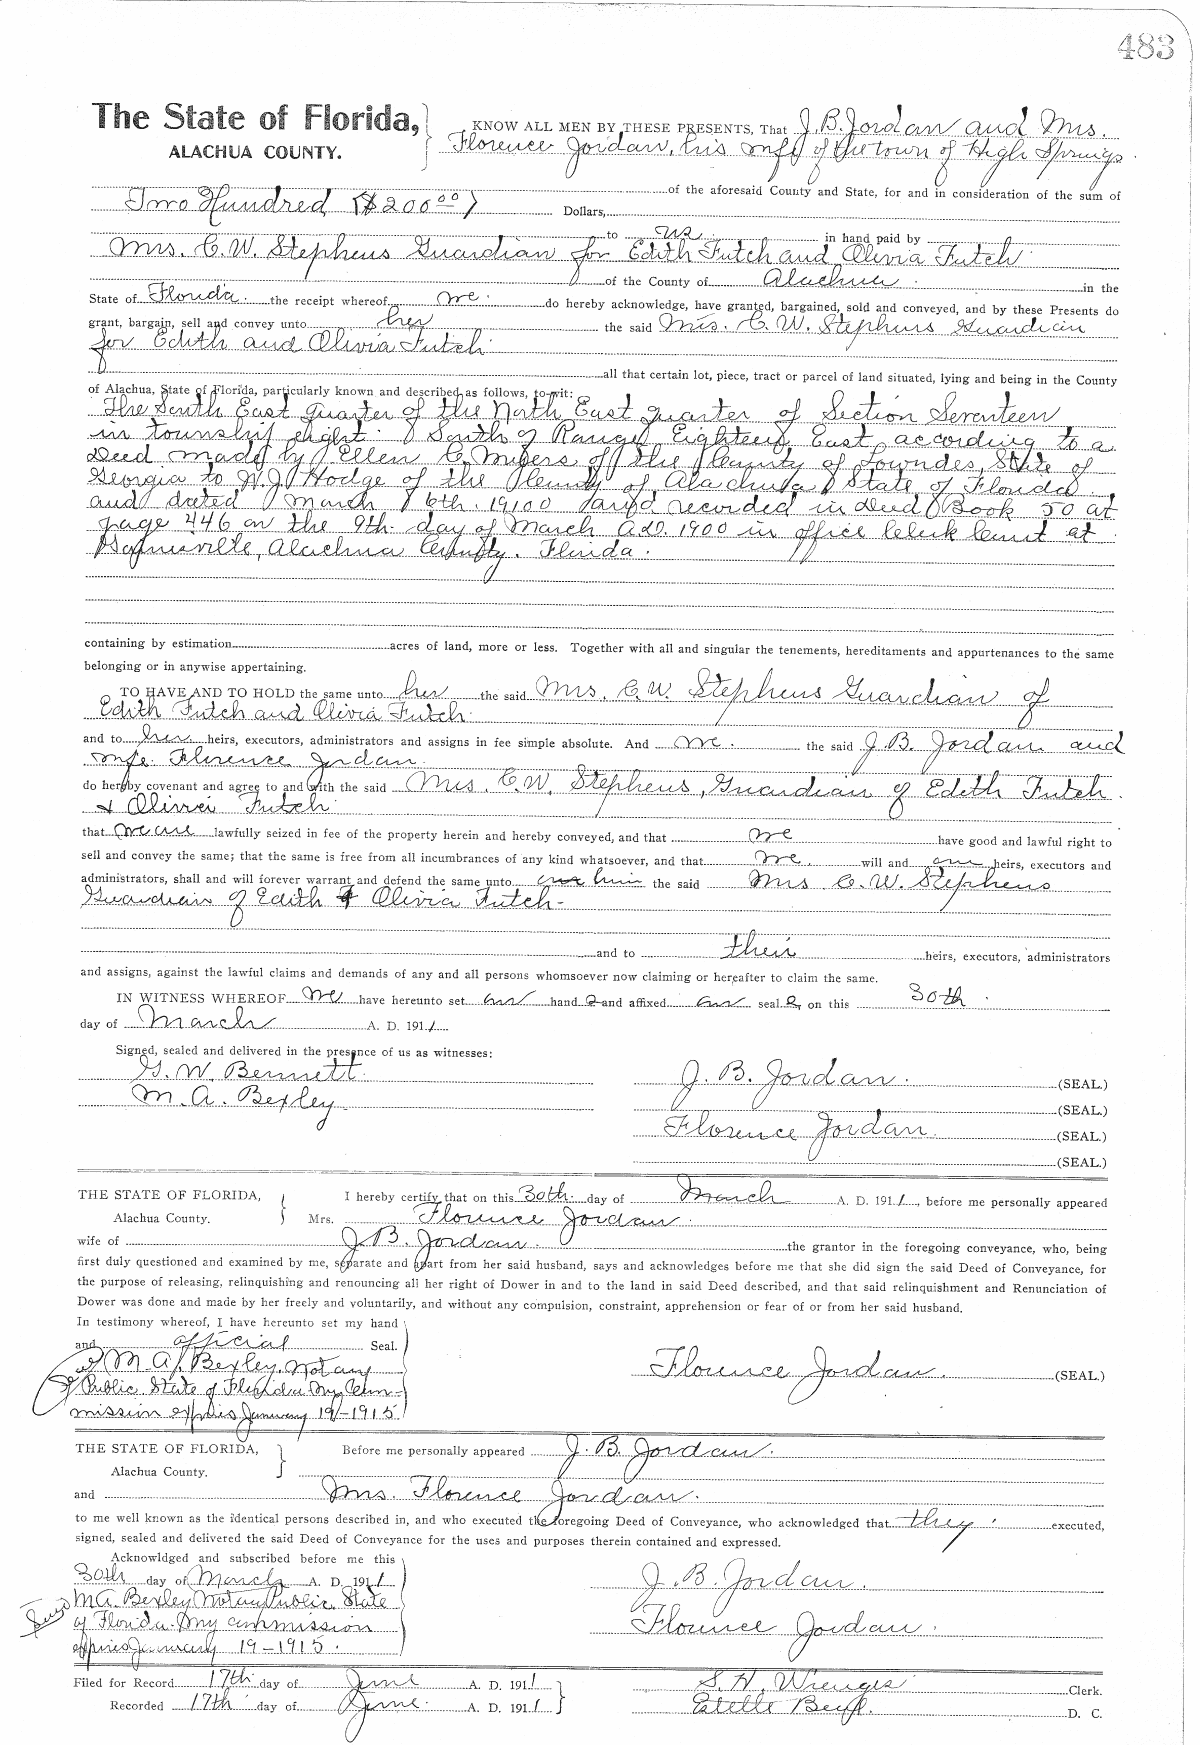 483
The State of Florida,
ALACHUA COUNTY.
KNOW ALL MEN BY THESE PRESENTS, That J. B. Jordan and Mrs.
Florence Jordan, his wife of the town of High Springs
of the aforesaid County and State, for and in consideration of the sum of
Two Hundred ($200 00) Dollars,
to us in hand paid by
Mrs. C. W. Stephens Guardian for Edith Futch and Olivia Futch
of the County of Alachua in the
State of Florida the receipt whereof we do hereby acknowledge, have granted, bargained, sold and conveyed, and by these Presents do
grant, bargain, sell and convey unto her the said Mrs. C. W. Stephens Guardian
for Edith and Olivia Futch
all that certain lot, piece, tract or parcel of land situated, lying and being in the County
of Alachua, State of Florida, particularly known and described as follows, to-wit:
The South East quarter of the North East quarter of Section Seventeen
in township eight 8 South of Range Eighteen East, according to a
Deed made by Ellen C. Myers of the County of Lowndes, State of
Georgia to W. J. Hodge of the County of Alachua State of Florida
and dated March 6th. 19100 and recorded in Deed Book 50 at
page 446 on the 9th. day of March A.D. 1900 in office Clerk Court at
Gainesville, Alachua County. Florida.
containing by estimation acres of land, more or less. Together with all and singular the tenements, hereditaments and appurtenances to the same
belonging or in anywise appertaining.
TO HAVE AND TO HOLD the same unto her the said Mrs. C. W. Stephens Guardian of
Edith Futch and Olivia Futch
and to her heirs, executors, administrators and assigns in fee simple absolute. And we. the said J. B. Jordan and
wife Florence Jordan
do hereby covenant and agree to and with the said Mrs. C. W. Stephens, Guardian of Edith Futch
& Olivia Futch
that we are lawfully seized in fee of the property herein and hereby conveyed, and that we have good and lawful right to
sell and convey the same; that the same is free from all incumbrances of any kind whatsoever, and that we. will and our heirs, executors and
administrators, shall and will forever warrant and defend the same unto him the said Mrs C. W. Stephens
Guardian of Edith & Olivia Futch-
and to their heirs, executors, administrators
and assigns, against the lawful claims and demands of any and all persons whomsoever now claiming or hereafter to claim the same.
IN WITNESS WHEREOF We have hereunto set our hand s and affixed our seal s on this 30th
day of March A. D. 1911.
Signed, sealed and delivered in the presence of us as witnesses:
G. W. Bennett.
M. A. Bexley.
J. B. Jordan. (SEAL.)
(SEAL.)
Florence Jordan. (SEAL.)
(SEAL.)
THE STATE OF FLORIDA,
Alachua County.
I hereby certify that on this 30th day of March A. D. 1911, before me personally appeared
Mrs. Florence Jordan.
wife of J. B. Jordan. the grantor in the foregoing conveyance, who, being
first duly questioned and examined by me, separate and apart from her said husband, says and acknowledges before me that she did sign the said Deed of Conveyance, for
the purpose of releasing, relinquishing and renouncing all her right of Dower in and to the land in said Deed described, and that said relinquishment and Renunciation of
Dower was done and made by her freely and voluntarily, and without any compulsion, constraint, apprehension or fear of or from her said husband.
In testimony whereof, I have hereunto set my hand
and official Seal.
M. A. Bexley. Notary
Public. State of Florida My Com-
mission expires January 19-1915
Florence Jordan. (SEAL.)
THE STATE OF FLORIDA,
Alachua County.
Before me personally appeared J. B. Jordan.
and Mrs. Florence Jordan.
to me well known as the identical persons described in, and who executed the foregoing Deed of Conveyance, who acknowledged that they executed,
signed, sealed and delivered the said Deed of Conveyance for the uses and purposes therein contained and expressed.
Acknowldged and subscribed before me this
30th day of March A. D. 1911
M. A. Bexley Notary Public. State
of Florida. My commission
expires January 19-1915.
J. B. Jordan.
Florence Jordan.
Filed for Record 17th day of June A. D. 1911
Recorded 17th day of June. A. D. 1911
S. H. Wienges Clerk.
Estelle D. C.